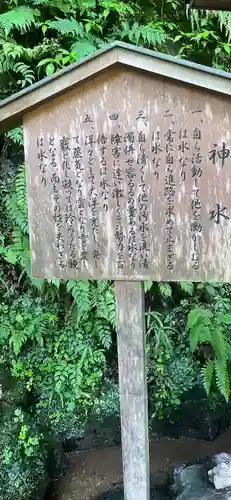 神水
一、自ら活動して他を動かしむる
は水なり
二、常に自ら進路を求めて止まざる
は水なり
三 自ら清くして他の汚水を洗い清
濁併せ容るの量あるは水なり
四 障害に逢い激しくその勢力を百
倍するは水なり
五 洋々として大洋を充たし 発し
て蒸気となり雲となり雪と変じ
霰と化し凝っては玲瓏たる鏡
となる 而もその性を失わざる
は水なり